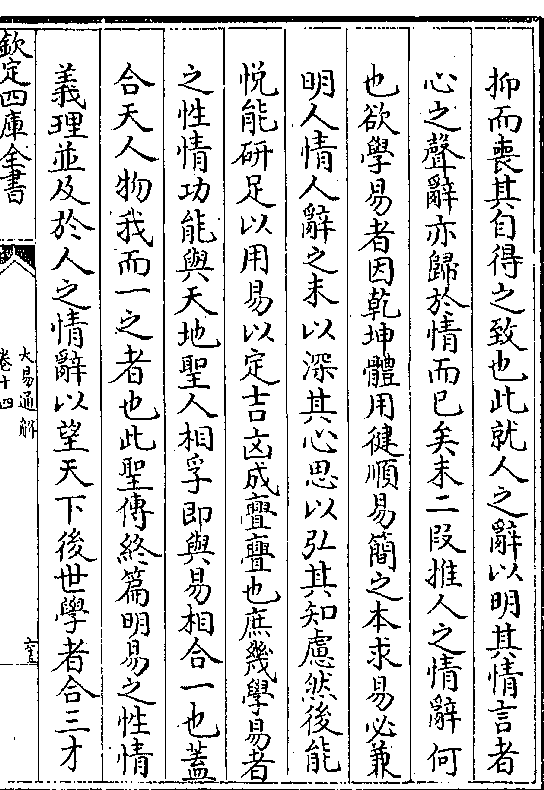 抑而喪其自得之致也此就人之辭以明其情言者
心之聲辭亦歸於情而已矣末二段推人之情辭何
也欲學易者因乾坤體用健順易簡之本求易必兼
明人情人辭之末以深其心思以弘其知慮然後能
悅能研足以用易以定吉凶成亹亹也庶幾學易者
之性情功能與天地聖人相孚即與易相合一也蓋
合天人物我而一之者也此聖傳終篇明易之性情
義理並及於人之情辭以望天下後世學者合三才
欽定四庫全書
大易通解
卷十四